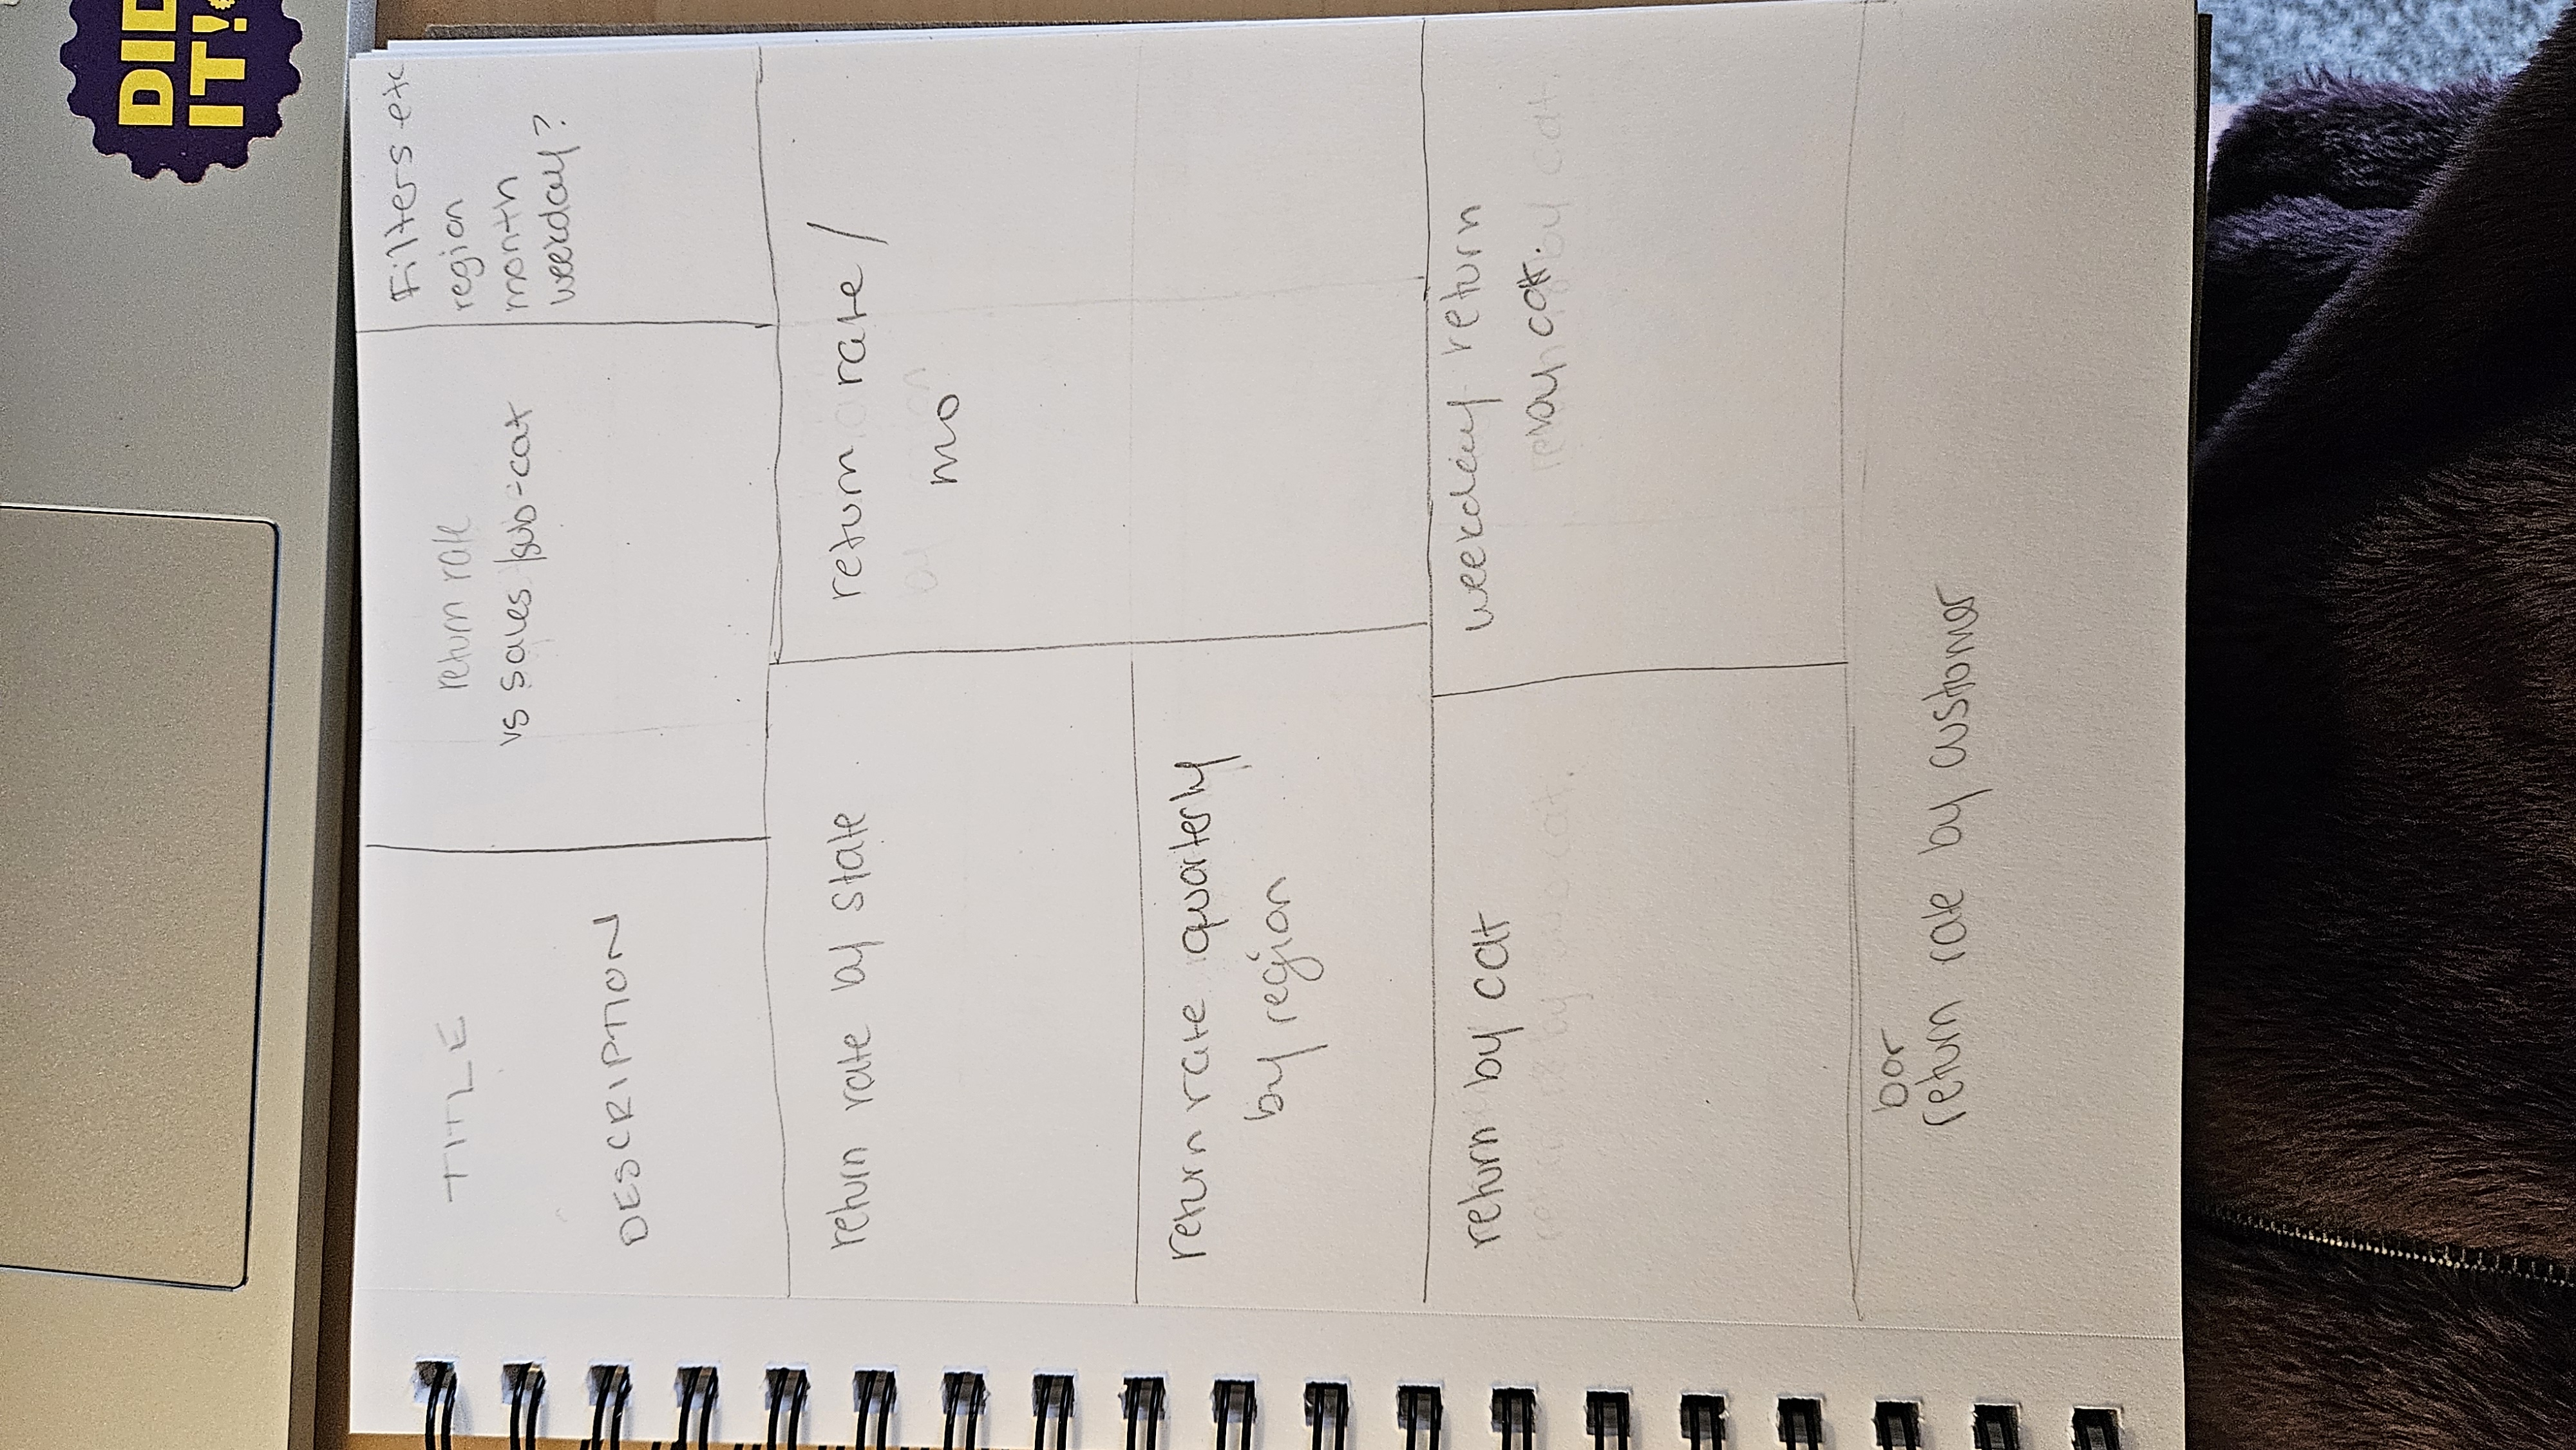 DID
IT!
TITLE
DESCRIPTION
return rate
vs sales /sub-cat
Filters etc
region
month
weekday?
return rate by state
return rate /
mo
return rate quarterly
by region
return by cat
return by cat.
weekday return
by cat.
bar
return rate by customer